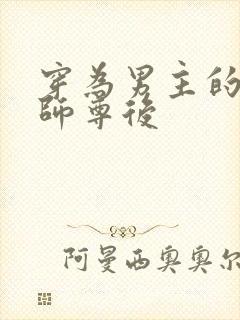 穿為男主的
師尊後
阿曼西奥奥尔